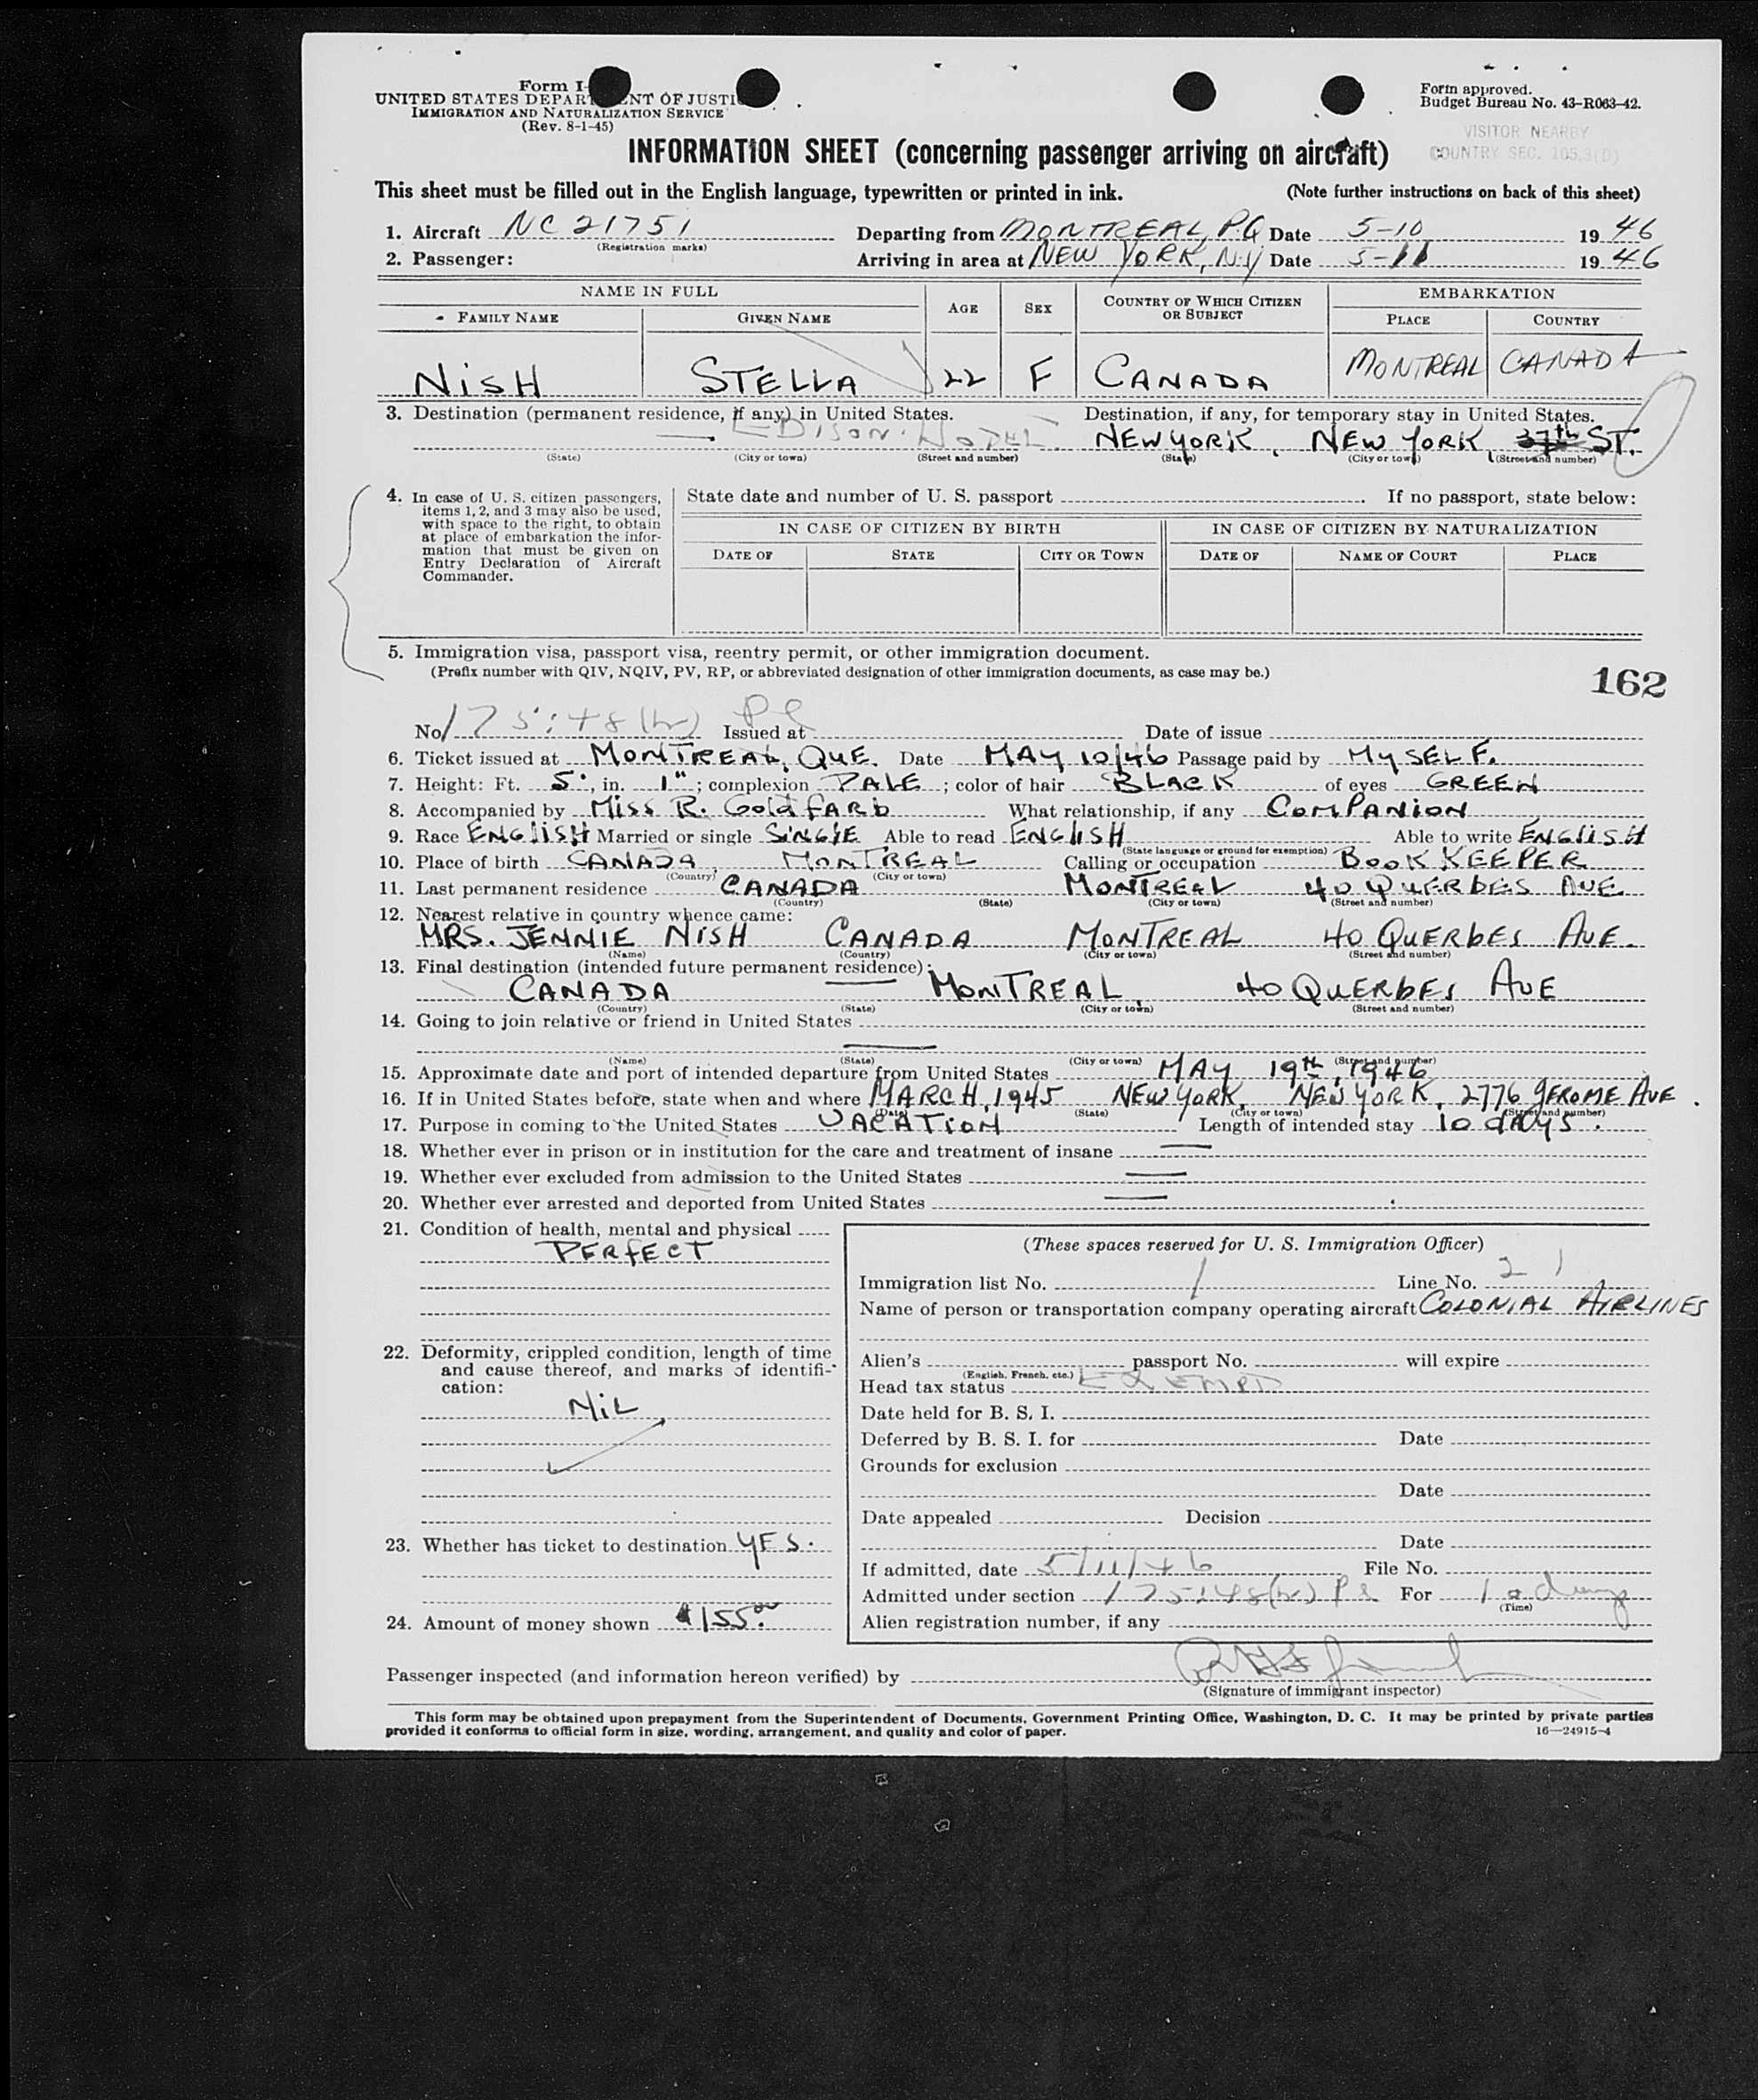 Form I-
UNITED STATES DEPARTMENT OF JUSTICE
IMMIGRATION AND NATURALIZATION SERVICE
(Rev. 8-1-45)
Form approved.
Budget Bureau No. 43-R063-42.
VISITOR NEARBY
COUNTRY SEC. 105.3(D)
INFORMATION SHEET (concerning passenger arriving on aircraft)
This sheet must be filled out in the English language, typewritten or printed in ink. (Note further instructions on back of this sheet)
1. Aircraft NC 21751 Departing from MONTREAL, P.Q Date 5-10 1946
(Registration marks)
2. Passenger: Arriving in area at NEW YORK, N.Y Date 5-11 1946
NAME IN FULL AGE SEX COUNTRY OF WHICH CITIZEN OR SUBJECT EMBARKATION
FAMILY NAME GIVEN NAME PLACE COUNTRY
NISH STELLA 22 F CANADA MONTREAL CANADA
3. Destination (permanent residence, if any) in United States. Destination, if any, for temporary stay in United States.
— EDISON HOTEL NEW YORK, NEW YORK, 37th ST.
(State) (City or town) (Street and number) (State) (City or town) (Street and number)
4. In case of U. S. citizen passengers, items 1, 2, and 3 may also be used, with space to the right, to obtain at place of embarkation the information that must be given on Entry Declaration of Aircraft Commander.
State date and number of U. S. passport . If no passport, state below:
IN CASE OF CITIZEN BY BIRTH IN CASE OF CITIZEN BY NATURALIZATION
DATE OF STATE CITY OR TOWN DATE OF NAME OF COURT PLACE
5. Immigration visa, passport visa, reentry permit, or other immigration document.
(Prefix number with QIV, NQIV, PV, RP, or abbreviated designation of other immigration documents, as case may be.)
162
No. 175:48 Issued at Date of issue
6. Ticket issued at MONTREAL, QUE. Date MAY 10/46 Passage paid by MYSELF.
7. Height: Ft. 5', in. 1"; complexion PALE; color of hair BLACK of eyes GREEN
8. Accompanied by MISS R. GOLDFARB What relationship, if any COMPANION
9. Race ENGLISH Married or single SINGLE Able to read ENGLISH Able to write ENGLISH
(State language or ground for exemption)
10. Place of birth CANADA, MONTREAL Calling or occupation BOOKKEEPER
(Country) (City or town)
11. Last permanent residence CANADA MONTREAL 40 QUERBES AVE
(Country) (State) (City or town) (Street and number)
12. Nearest relative in country whence came:
MRS. JENNIE NISH CANADA MONTREAL 40 QUERBES AVE.
(Name) (Country) (City or town) (Street and number)
13. Final destination (intended future permanent residence):
CANADA — MONTREAL, 40 QUERBES AVE
(Country) (State) (City or town) (Street and number)
14. Going to join relative or friend in United States
—
(Name) (State) (City or town) (Street and number)
15. Approximate date and port of intended departure from United States MAY 19TH, 1946
16. If in United States before, state when and where MARCH, 1945 NEW YORK, NEW YORK, 2776 JEROME AVE.
(Date) (State) (City or town) (Street and number)
17. Purpose in coming to the United States VACATION Length of intended stay 10 DAYS.
18. Whether ever in prison or in institution for the care and treatment of insane —
19. Whether ever excluded from admission to the United States —
20. Whether ever arrested and deported from United States —
21. Condition of health, mental and physical
PERFECT
22. Deformity, crippled condition, length of time and cause thereof, and marks of identification:
NIL
23. Whether has ticket to destination YES.
24. Amount of money shown $155.00
(These spaces reserved for U. S. Immigration Officer)
Immigration list No. 1 Line No. 21
Name of person or transportation company operating aircraft COLONIAL AIRLINES
Alien's passport No. will expire
(English, French, etc.)
Head tax status EXEMPT
Date held for B. S. I.
Deferred by B. S. I. for Date
Grounds for exclusion
Date
Date appealed Decision
Date
If admitted, date 5/11/46 File No.
Admitted under section 175:48 For 10 days
(Time)
Alien registration number, if any
Passenger inspected (and information hereon verified) by
(Signature of immigrant inspector)
This form may be obtained upon prepayment from the Superintendent of Documents, Government Printing Office, Washington, D. C. It may be printed by private parties
provided it conforms to official form in size, wording, arrangement, and quality and color of paper. 16—24915-4